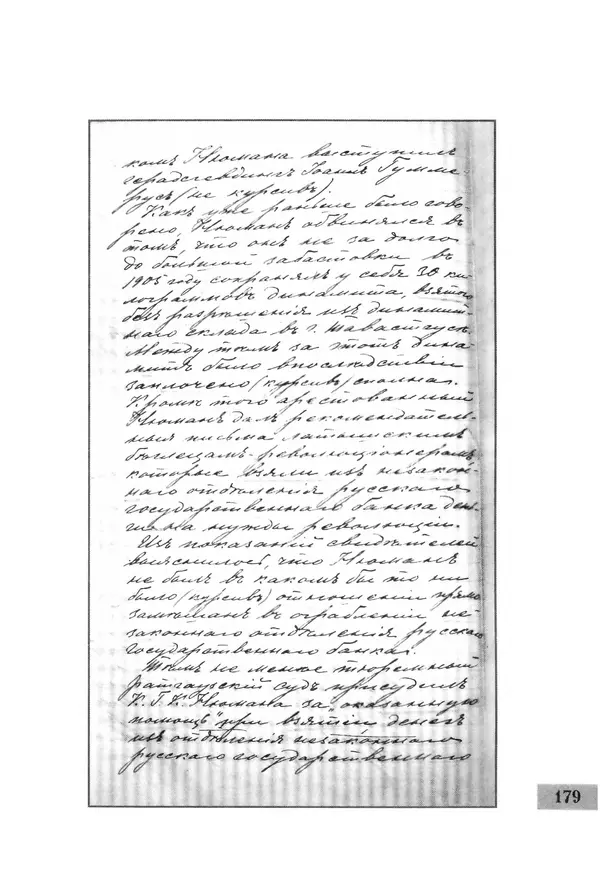 комъ Нюмана выступилъ
герадсгевдингъ Іоаннъ Гумме-
русъ (не курсивъ).
Какъ уже раньше было гово-
рено, Нюманъ обвинялся въ
томъ, что онъ не за долго
до большой забастовки въ
1905 году сохранялъ у себя 30 ки-
лограммовъ динамита, взятого
безъ разрѣшенія изъ динамит-
наго склада въ г. Тавастгусѣ.
Между тѣмъ за этотъ дина-
митъ было впослѣдствіи
заплочено (курсивъ) сполна.
Кромѣ того арестованный
Нюманъ далъ рекомендатель-
ныя письма латышскимъ
бѣглецамъ-революціонерамъ,
которые взяли изъ незакон-
наго отдѣленія русскаго
государственнаго банка день-
ги на нужды революціи.
Изъ показаній свидѣтелей
выяснилось, что Нюманъ
не былъ въ какомъ бы то ни
было (курсивъ) отношеніи прямо
замѣшанъ въ ограбленіи не-
законнаго отдѣленія русскаго
государственнаго банка.
Тѣмъ не менѣе тюремный
ратгаузскій судъ присудилъ
К. Г. К. Нюмана за „оказанную
помощь" при взятіи денегъ
изъ отдѣленія незаконнаго
русскаго государственнаго
179